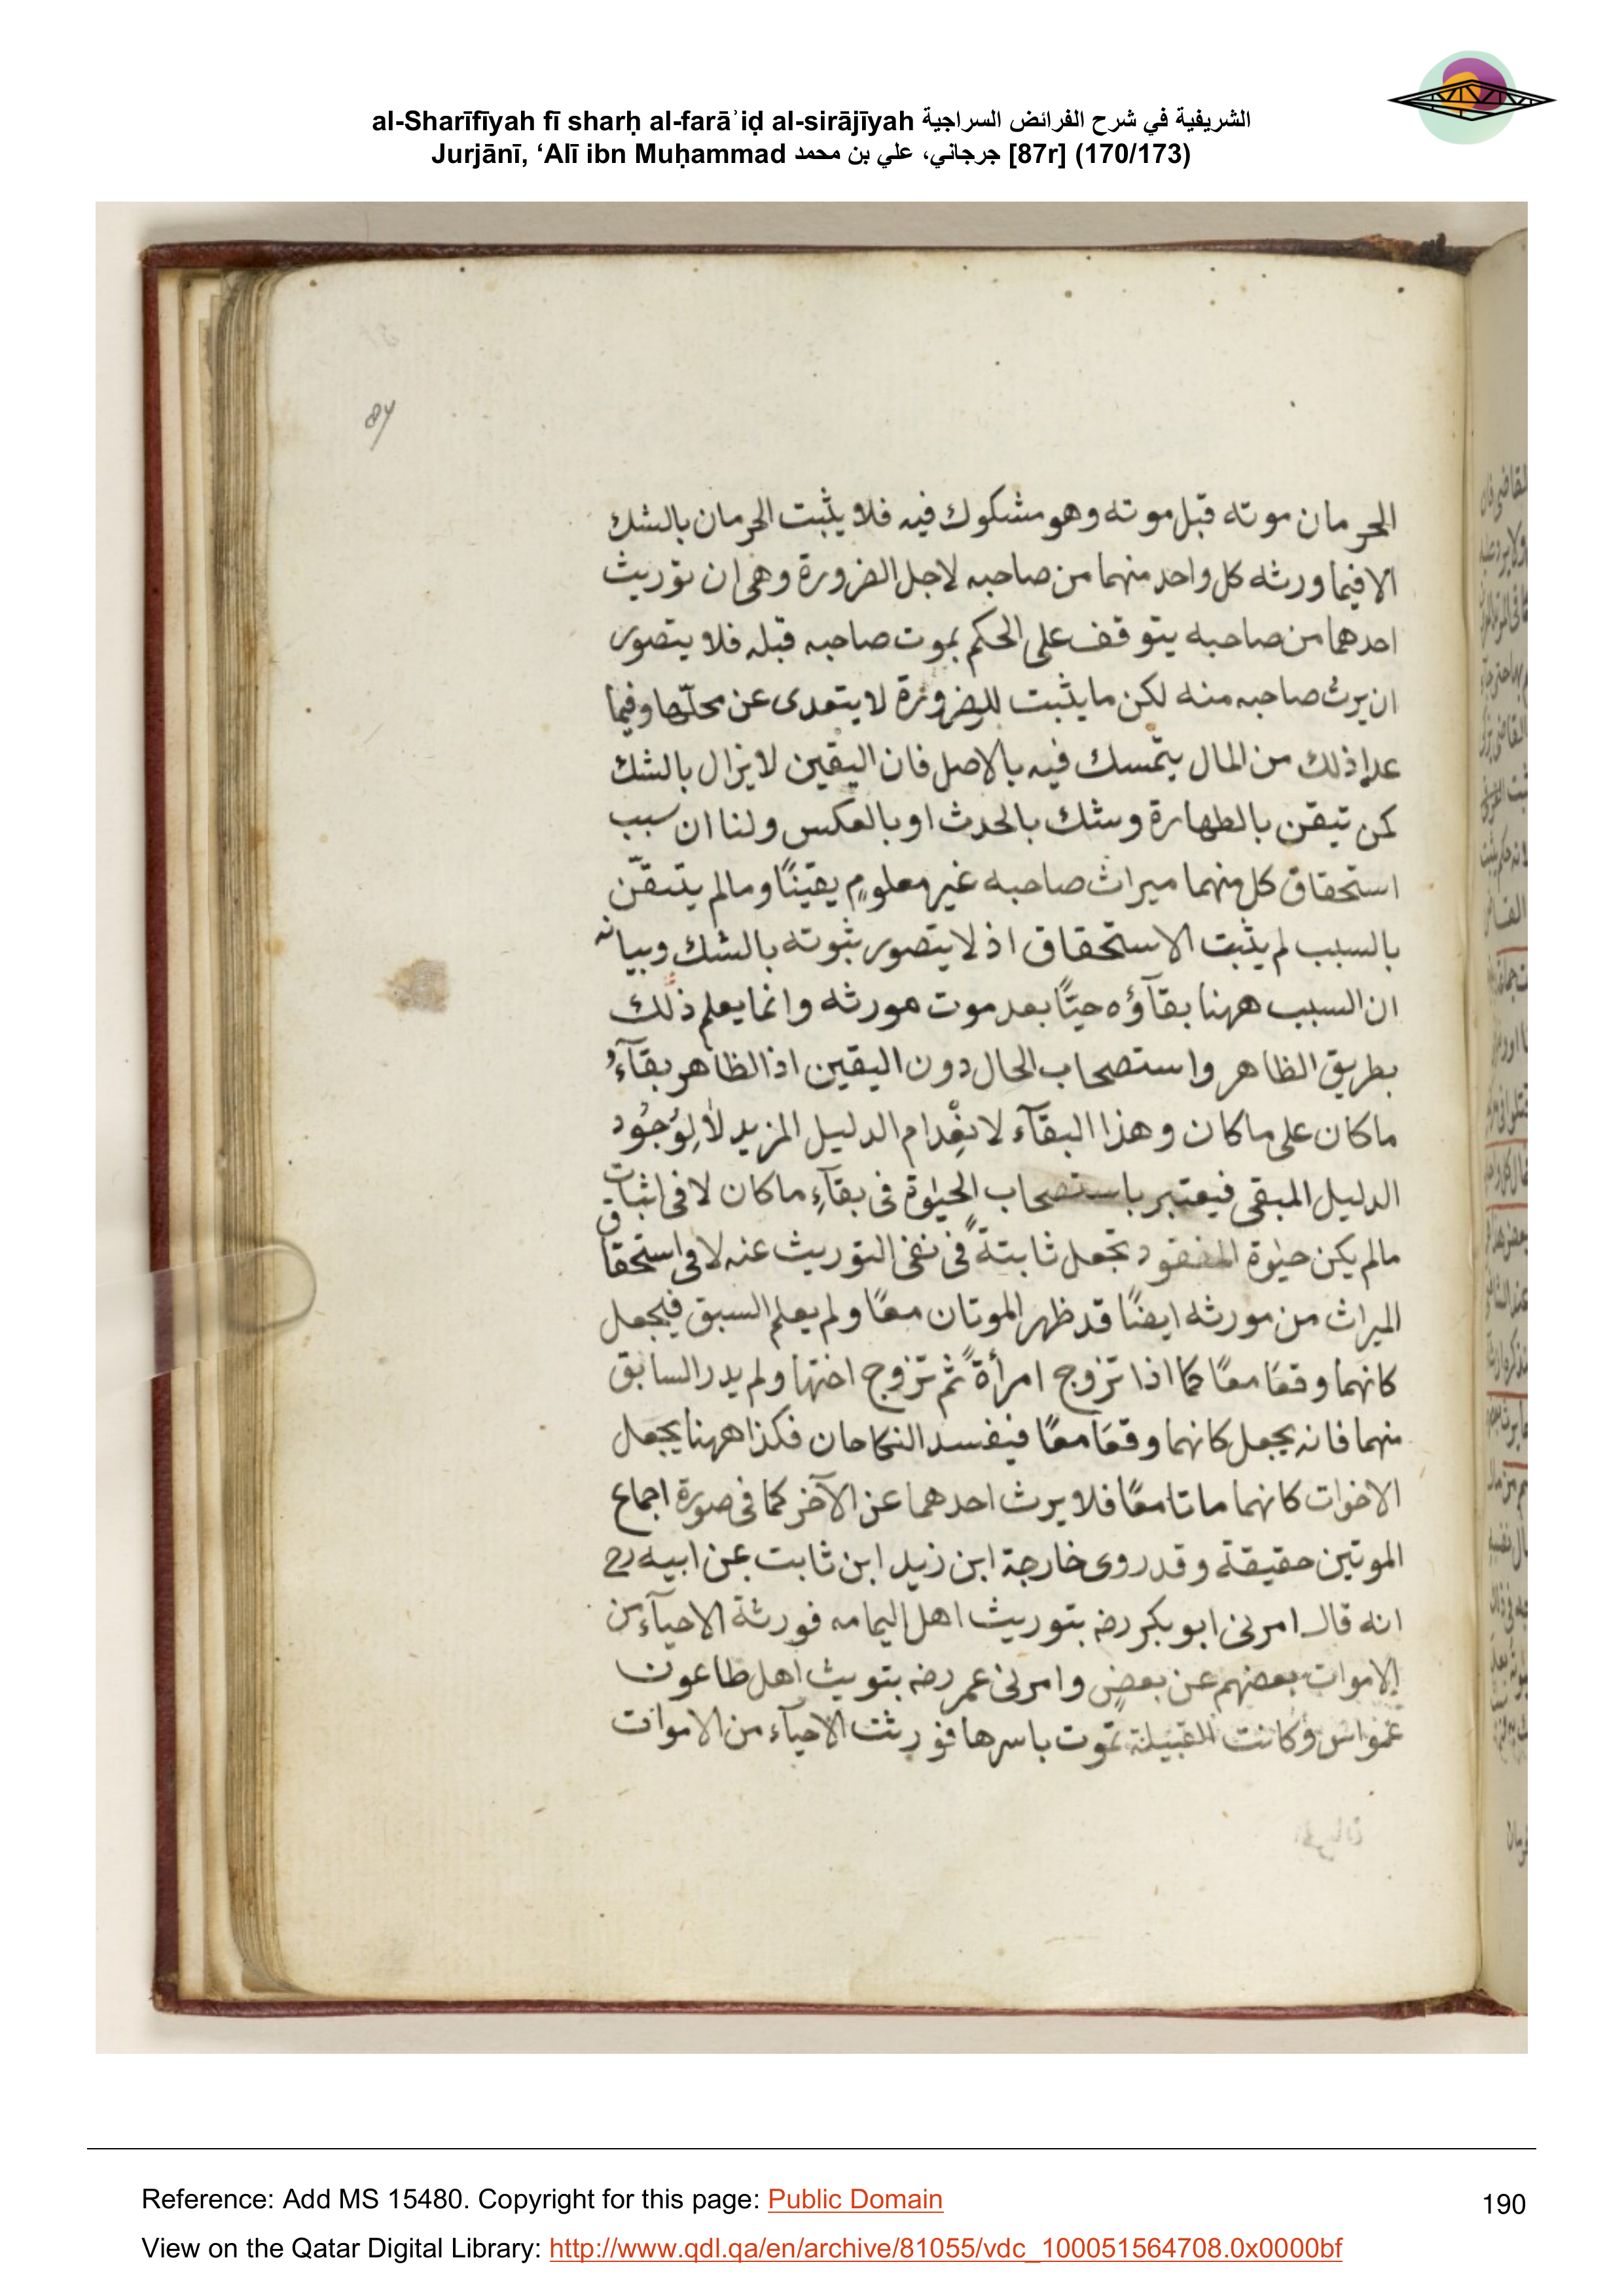 al-Sharīfīyah fī sharḥ al-farāʾiḍ al-sirājīyah الشريفية في شرح الفرائض السراجية
Jurjānī, ‘Alī ibn Muḥammad جرجاني، علي بن محمد [87r] (170/173)
87
الحرمان موته قبل موته وهو مشكوك فيه فلا يثبت الحرمان بالشك
الا فيما ورثه كل واحد منهما من صاحبه لاجل الضرورة وهى ان توريث
احدهما من صاحبه يتوقف على الحكم بموت صاحبه قبله فلا يتصور
ان يرث صاحبه منه لكن ما يثبت للضرورة لا يتعدى عن محلّها وفيما
عدا ذلك من المال يتمسك فيه بالاصل فان اليقين لا يزال بالشك
كمن تيقن بالطهارة وشك بالحدث او بالعكس ولنا ان سبب
استحقاق كل منهما ميراث صاحبه غير معلومٍ يقينًا وما لم يتيقّن
بالسبب لم يثبت الاستحقاق اذ لا يتصور ثبوته بالشك وبيانه
ان السبب ههنا بقآؤه حيًّا بعد موت مورثه وانما يعلم ذلك
بطريق الظاهر واستصحاب الحال دون اليقين اذ الظاهر بقآءُ
ما كان على ما كان وهذا البقآء لانعِْدام الدليل المزيد لا لِوُجُود
الدليل المبقى فيعتبر باستصحاب الحيوٰة فى بقآءِ ما كان لا فى اثبات
مالم يكن حيوٰة المفقود تجعل ثابتةً فى نفى التوريث عنه لا فى استحقاق
الميراث من مورثه ايضًا قد ظهر الموتان معًا ولم يعلم السبق فيجعل
كانهما وقعَا معًا كما اذا تزوج امرأةً ثم تزوج اختها ولم يدر السابق
منهما فانه يجعل كانهما وقعَا معًا فيفسد النكاحان فكذا ههنا يجعل
الاخوات كانهما ماتا معًا فلا يرث احدهما عن الآخر كما فى صورة اجماع
الموتين حقيقة وقد روى خارجة ابن زيد ابن ثابت عن ابيه رح
انه قال امرنى ابو بكر رضه بتوريث اهل اليمامه فورثة الاحيآء من
الاموات بعضهم عن بعضٍ وامرنى عمر رضه بتويث اهل طاعون
عمواس وكانت القبيلة تموت باسرها فورثت الاحيآء من الاموات
Reference: Add MS 15480. Copyright for this page: Public Domain
190
View on the Qatar Digital Library: http://www.qdl.qa/en/archive/81055/vdc_100051564708.0x0000bf